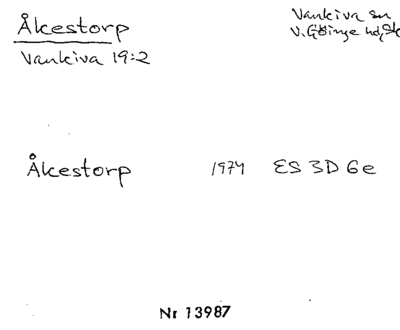 Åkestorp
Vankiva sn
Vankiva 19:2
V. Göinge hd, Sk
Åkestorp 1974 ES 3D 6e
Nr 13987